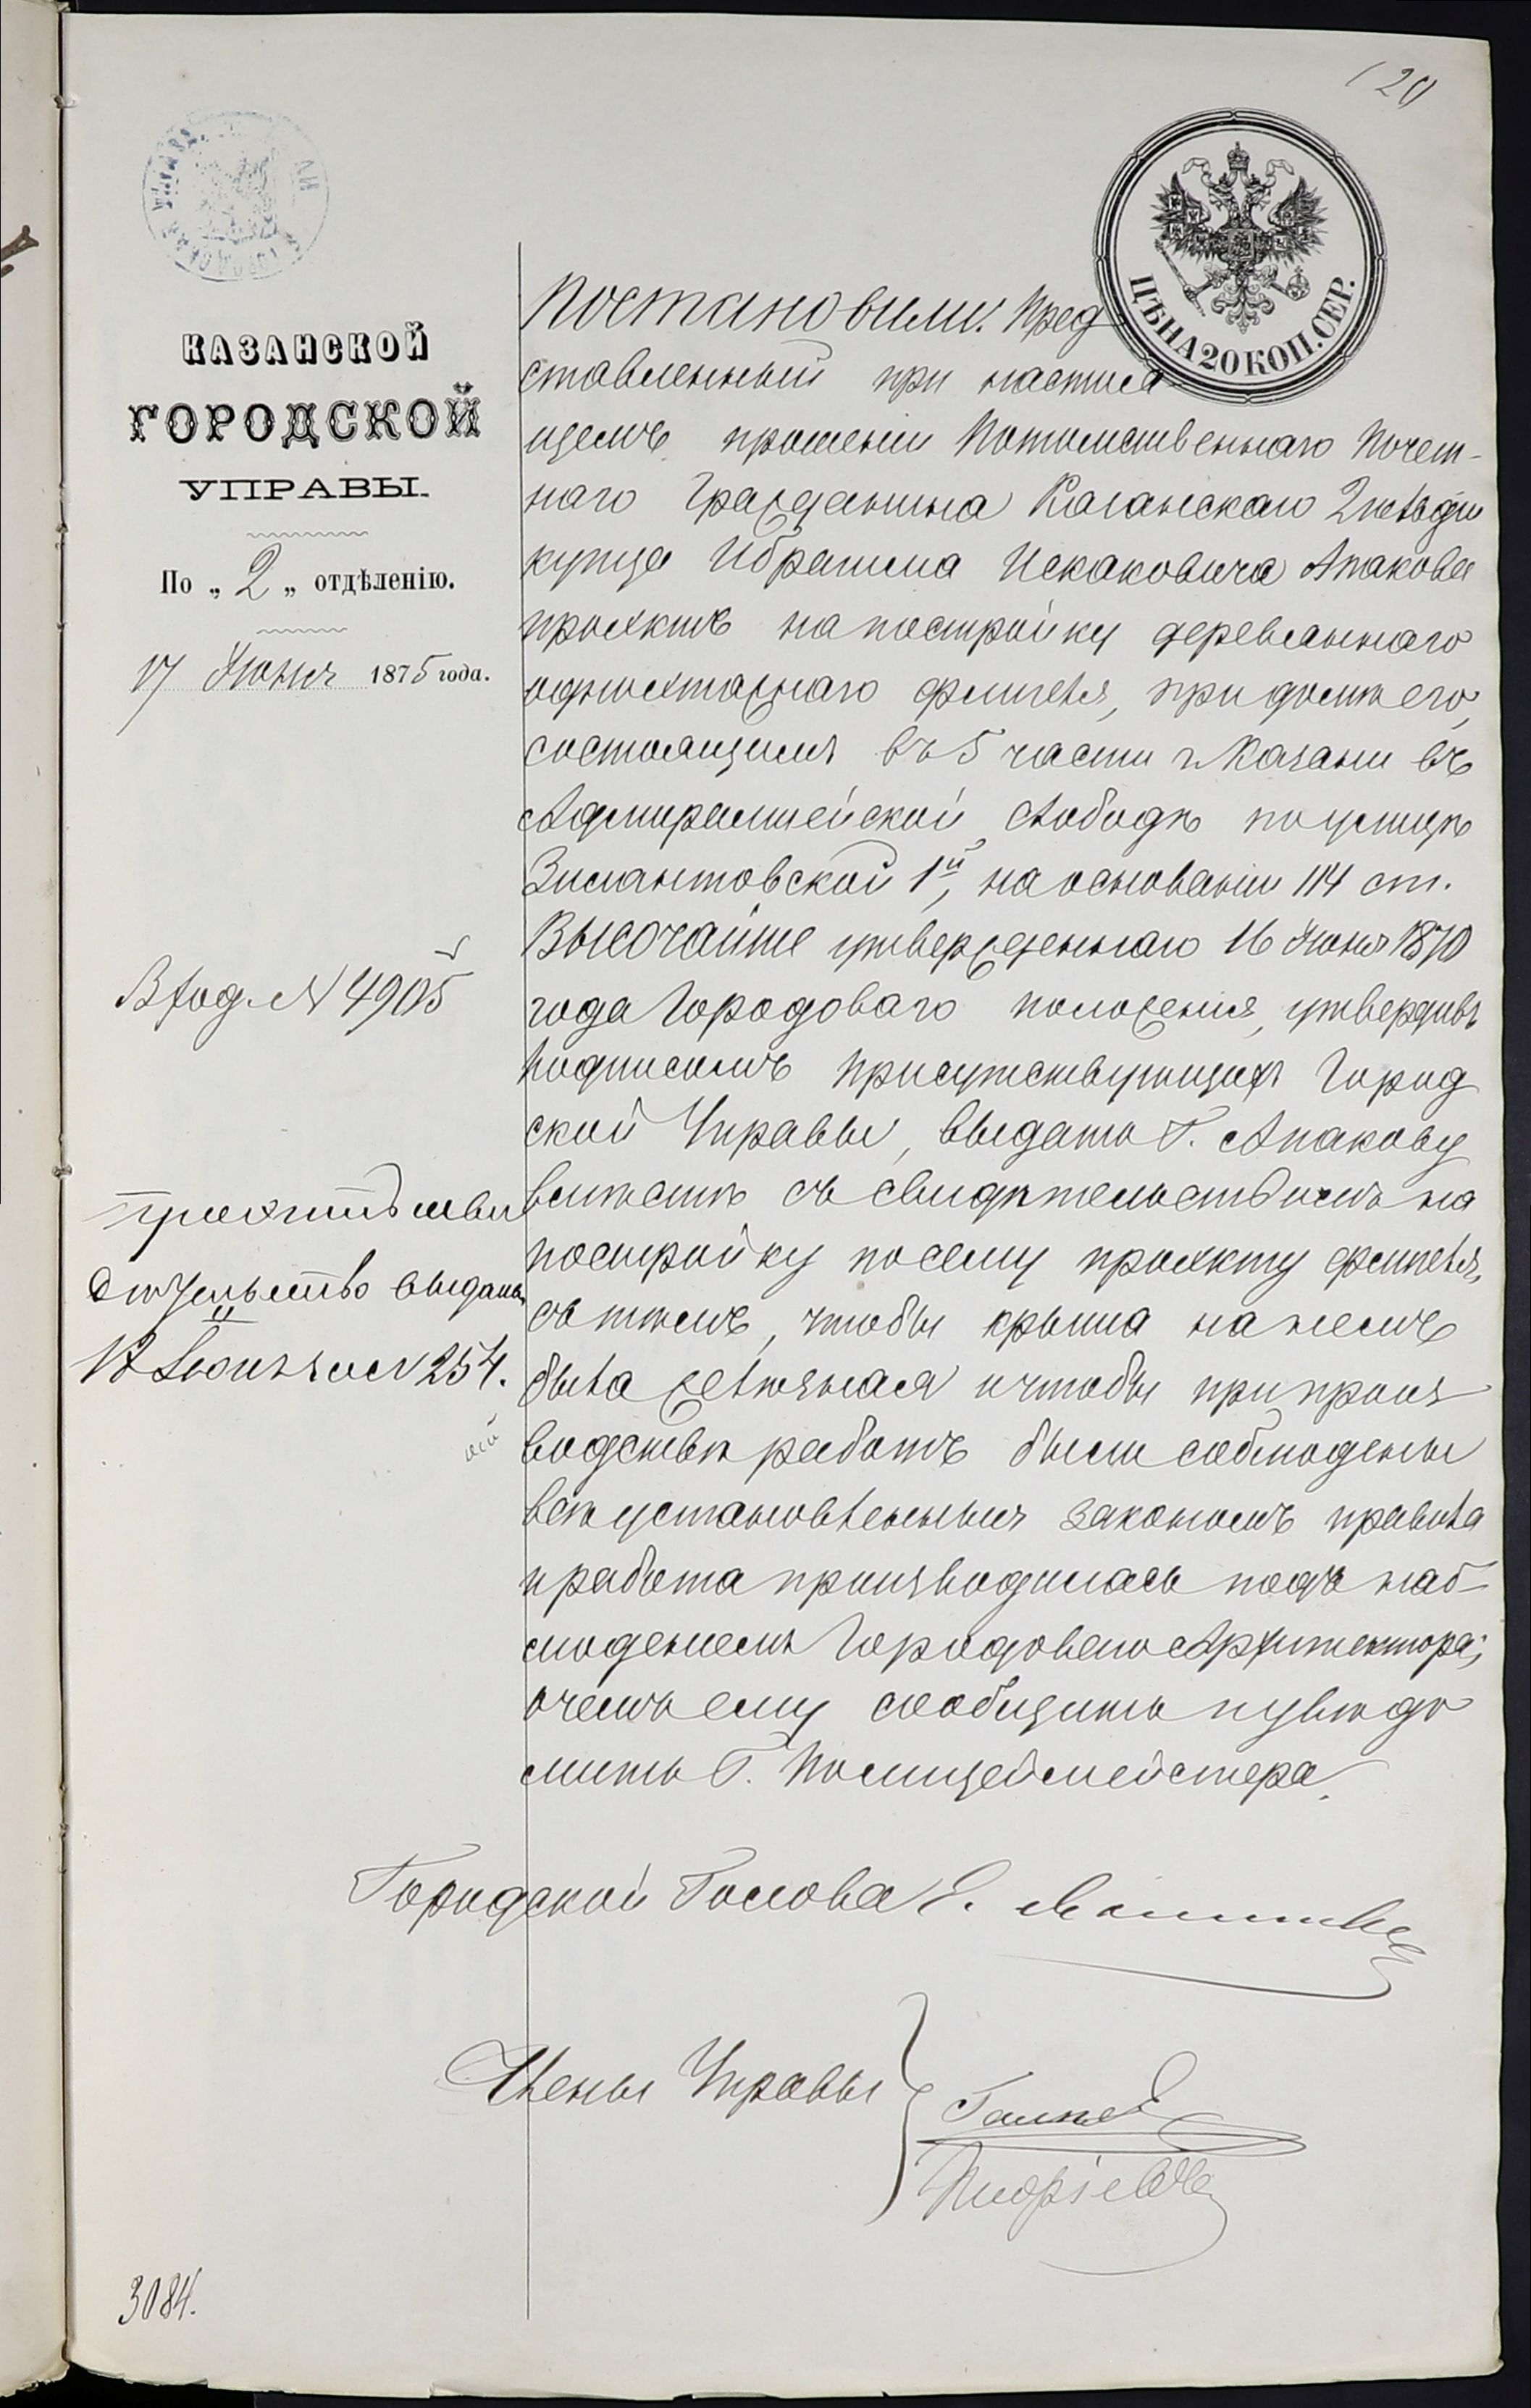 120
ЦѢНА 20 КОП. СЕР.
КАЗАНСКОЙ
ГОРОДСКОЙ
УПРАВЫ.
По „2„ отдѣленію.
17 Июня 1875 года.
Вход. № 4905
Проэктъ и сви
дѣтельство выданы
18 Июня за № 254.
3084.
Постановили: Пред
ставленный при настоя
щемъ прошеніи Потомственнаго Почет-
наго Гражданина Казанскаго 2 гильдіи
купца Ибрагима Искаковича Апакова
проэктъ на постройку деревяннаго
одноэтажнаго флигеля, при домѣ его,
состоящимъ въ 5 части г. Казани въ
Адмиралтейской слободѣ по улицѣ
Зилантовской 1й, на основаніи 114 ст.
Высочайше утвержденнаго 16 Июня 1870
года Городоваго положенія, утвердивъ
подписомъ присутствующихъ Город
ской Управы, выдать Г. Апакову
вмѣстѣ съ свидѣтельствомъ на
постройку по сему проэкту флигеля,
съ тѣмъ, чтобы крыша на немъ
была желѣзная и чтобы при произ
водствѣ работъ были соблюдены
всѣ установленныя закономъ правила
и работа производилась подъ наб-
люденіемъ Городоваго Архитектора;
о чемъ ему сообщить и увѣдо
мить Г. Полицеймейстера.
Городской Голова Е.
Члены Управы